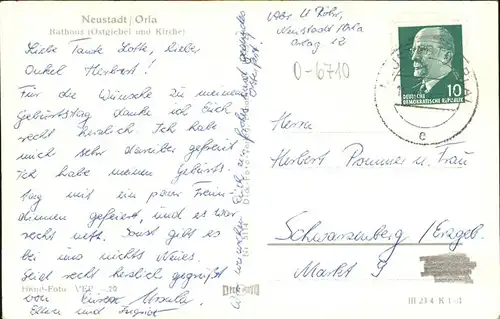 Neustadt / Orla
Rathaus (Ostgiebel) und Kirche)
Liebe Tante Lotte, lieber
Onkel Herbert!
Für die Wünsche zu meinem
Geburtstag danke ich Euch
recht herzlich. Ich habe
mich sehr darüber gefreut.
Ich habe meinen Geburts-
tag mit ein paar Freun-
dinnen gefeiert, und es war
recht nett. Sonst gibt es
bei uns nichts Neues.
Seid recht herzlich gegrüßt
von Eurer Ursula,
Eltern und
wünschen Euch
frohes und gesundes
Osterfest!
Abs. U. Röhr,
Neustadt/Orla
0-6710
10
DEUTSCHE
DEMOKRATISCHE REPUBLIK
Herrn
Herbert Pommer u. Frau
Schwarzenberg / Erzgeb.
Markt 9
III 23 4 K 1